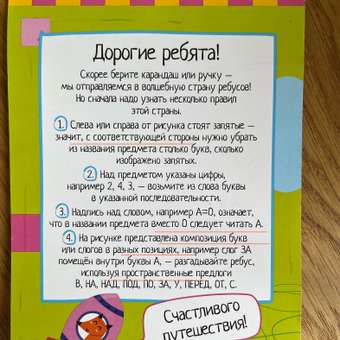 Дорогие ребята!
Скорее берите карандаш или ручку —
мы отправляемся в волшебную страну ребусов!
Но сначала надо узнать несколько правил
этой страны.
1. Слева или справа от рисунка стоят запятые —
значит, с соответствующей стороны нужно убрать
из названия предмета столько букв, сколько
изображено запятых.
2. Над предметом указаны цифры,
например 2, 4, 3, — возьмите из слова буквы
в указанной последовательности.
3. Надпись над словом, например А=О, означает,
что в названии предмета вместо О следует читать А.
4. На рисунке представлена композиция букв
или слогов в разных позициях, например слог ЗА
помещён внутри буквы А, — разгадывайте ребус,
используя пространственные предлоги
В, НА, НАД, ПОД, ПО, ЗА, У, ПЕРЕД, ОТ, С.
Счастливого
путешествия!